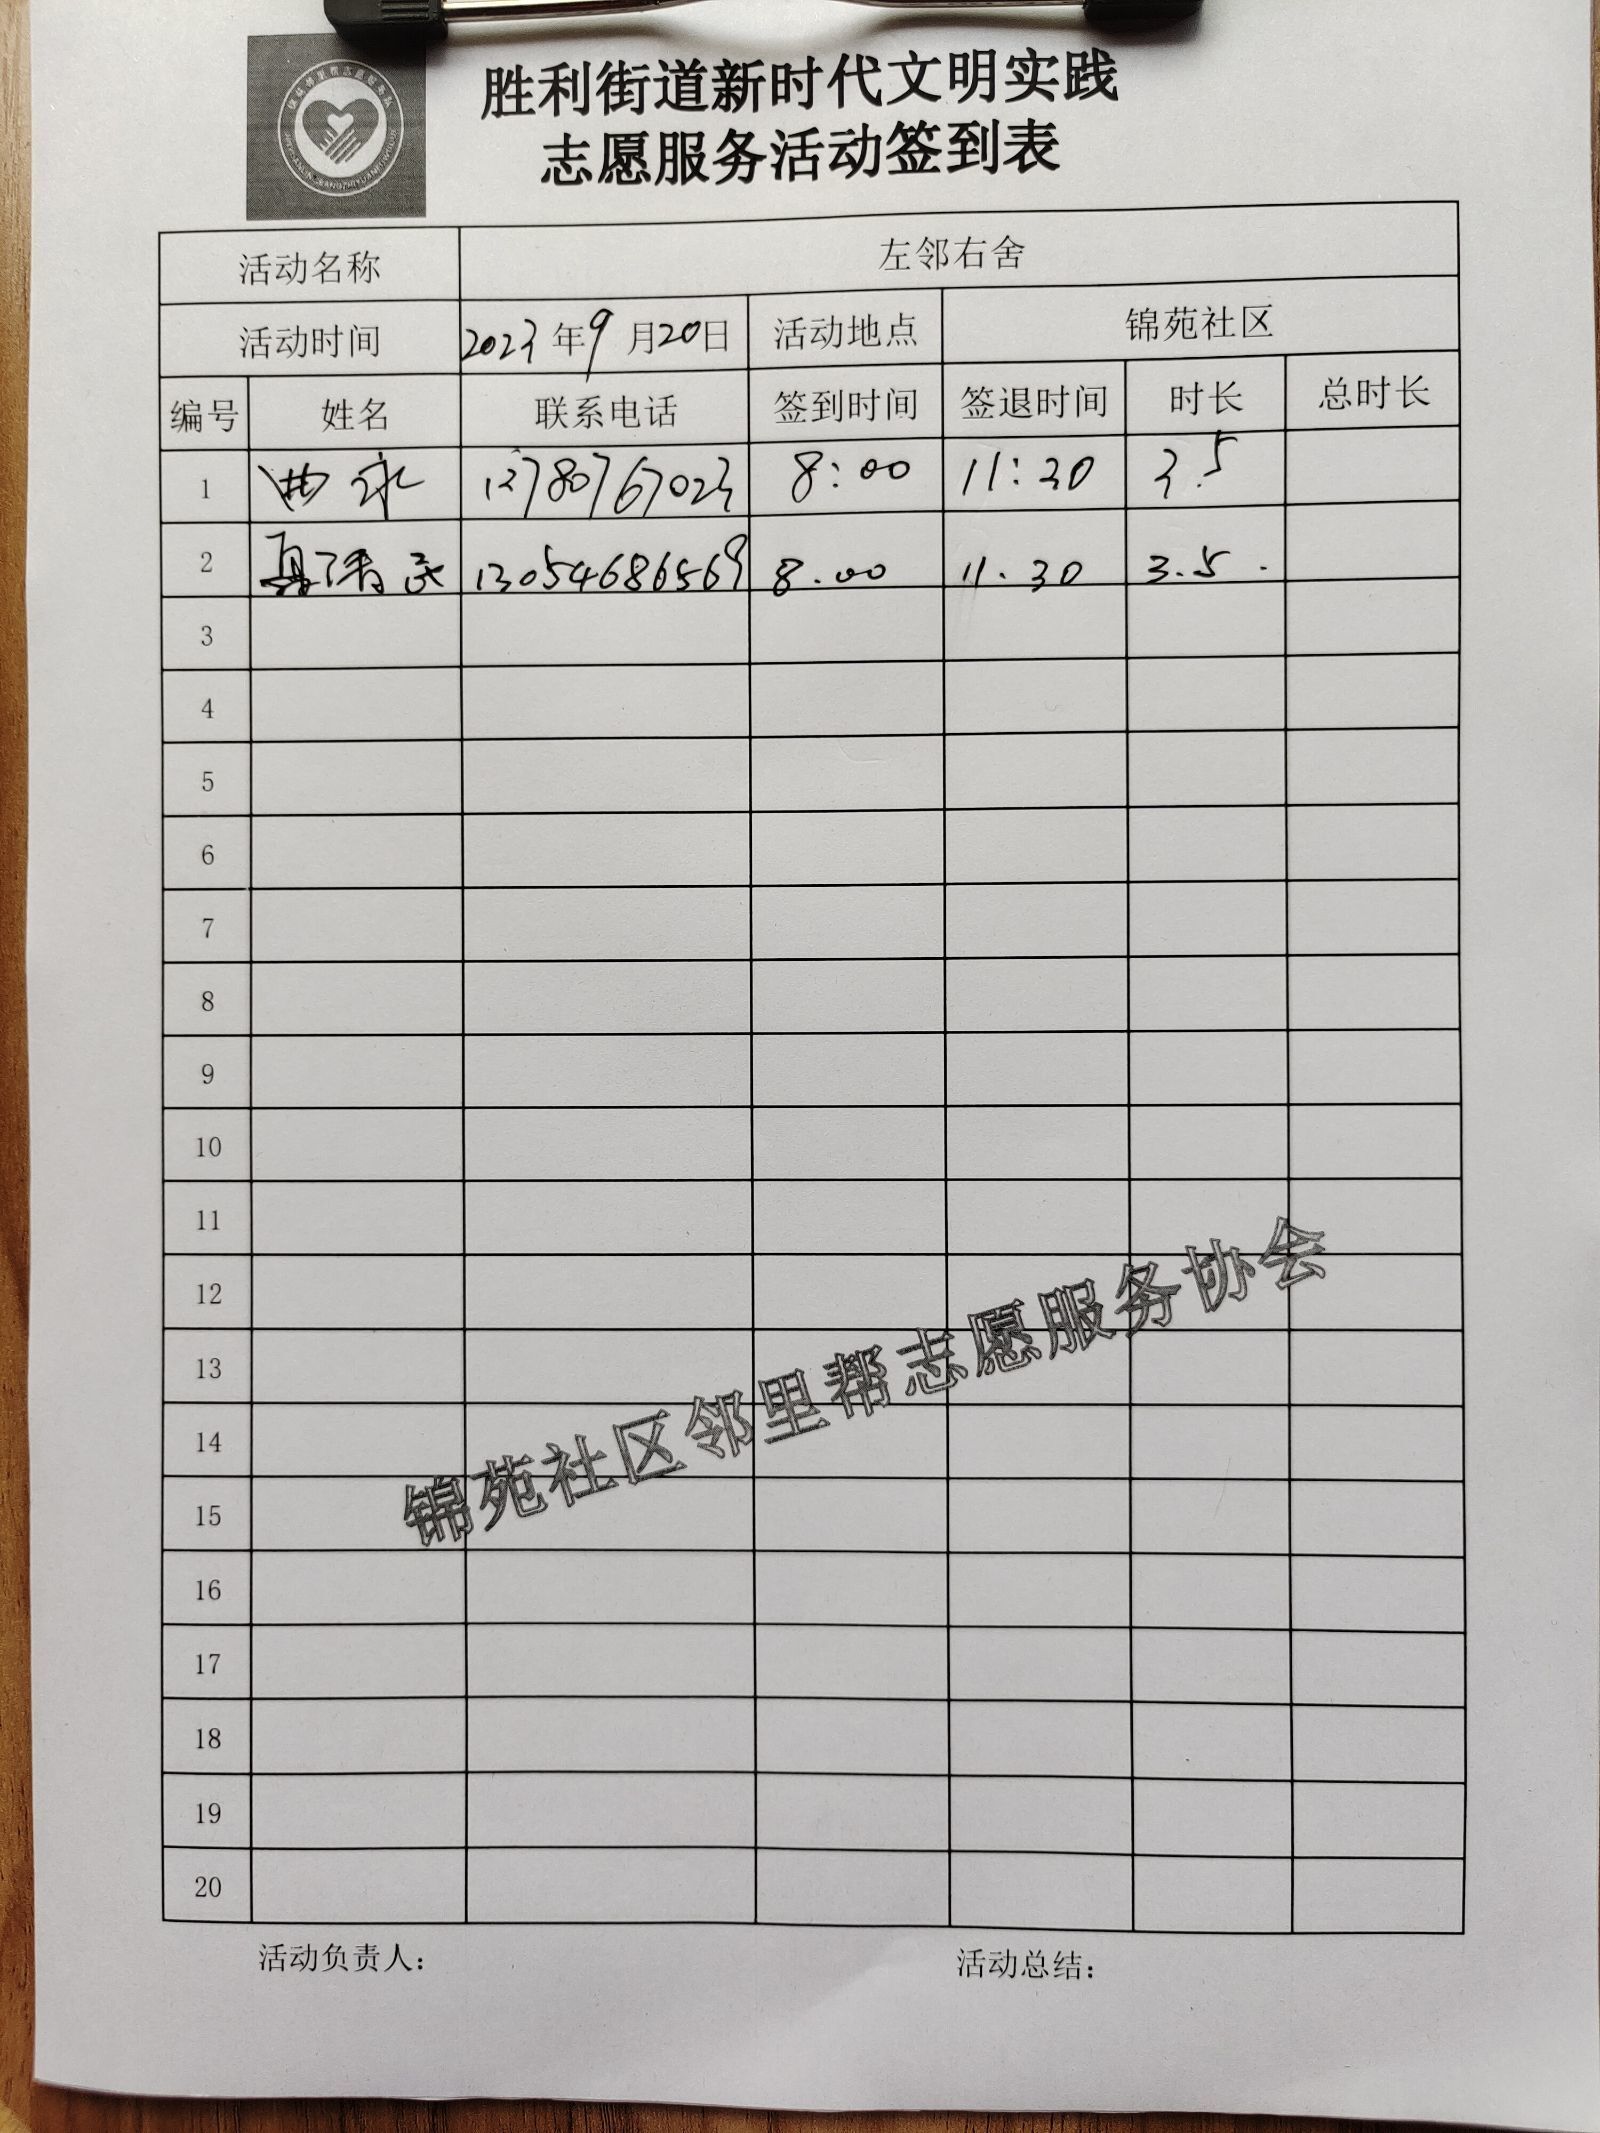 胜利街道新时代文明实践
志愿服务活动签到表
活动名称 左邻右舍
活动时间 2023年9月20日 活动地点 锦苑社区
编号 姓名 联系电话 签到时间 签退时间 时长 总时长
1 曲永 13780767023 8:00 11:30 3.5
2 13054686569 8.00 11.30 3.5.
3
4
5
6
7
8
9
10
11
12
13
14
15
16
17
18
19
20
锦苑社区邻里帮志愿服务协会
活动负责人： 活动总结：